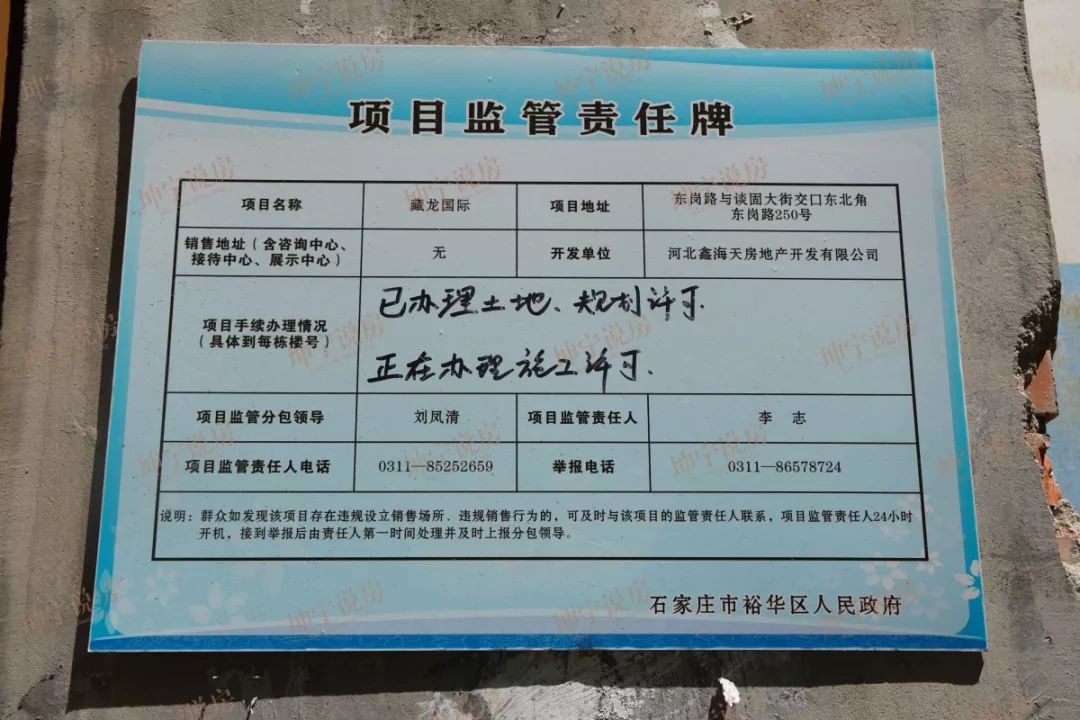 项目监管责任牌
项目名称 藏龙国际 项目地址 东岗路与谈固大街交口东北角
东岗路250号
销售地址（含咨询中心、
接待中心、展示中心） 无 开发单位 河北鑫海天房地产开发有限公司
项目手续办理情况
（具体到每栋楼号）
已办理土地、规划许可.
正在办理施工许可.
项目监管分包领导 刘凤清 项目监管责任人 李 志
项目监管责任人电话 0311—85252659 举报电话 0311—86578724
说明：群众如发现该项目存在违规设立销售场所、违规销售行为的，可及时与该项目的监管责任人联系，项目监管责任人24小时
开机，接到举报后由责任人第一时间处理并及时上报分包领导。
石家庄市裕华区人民政府
坤宁说房